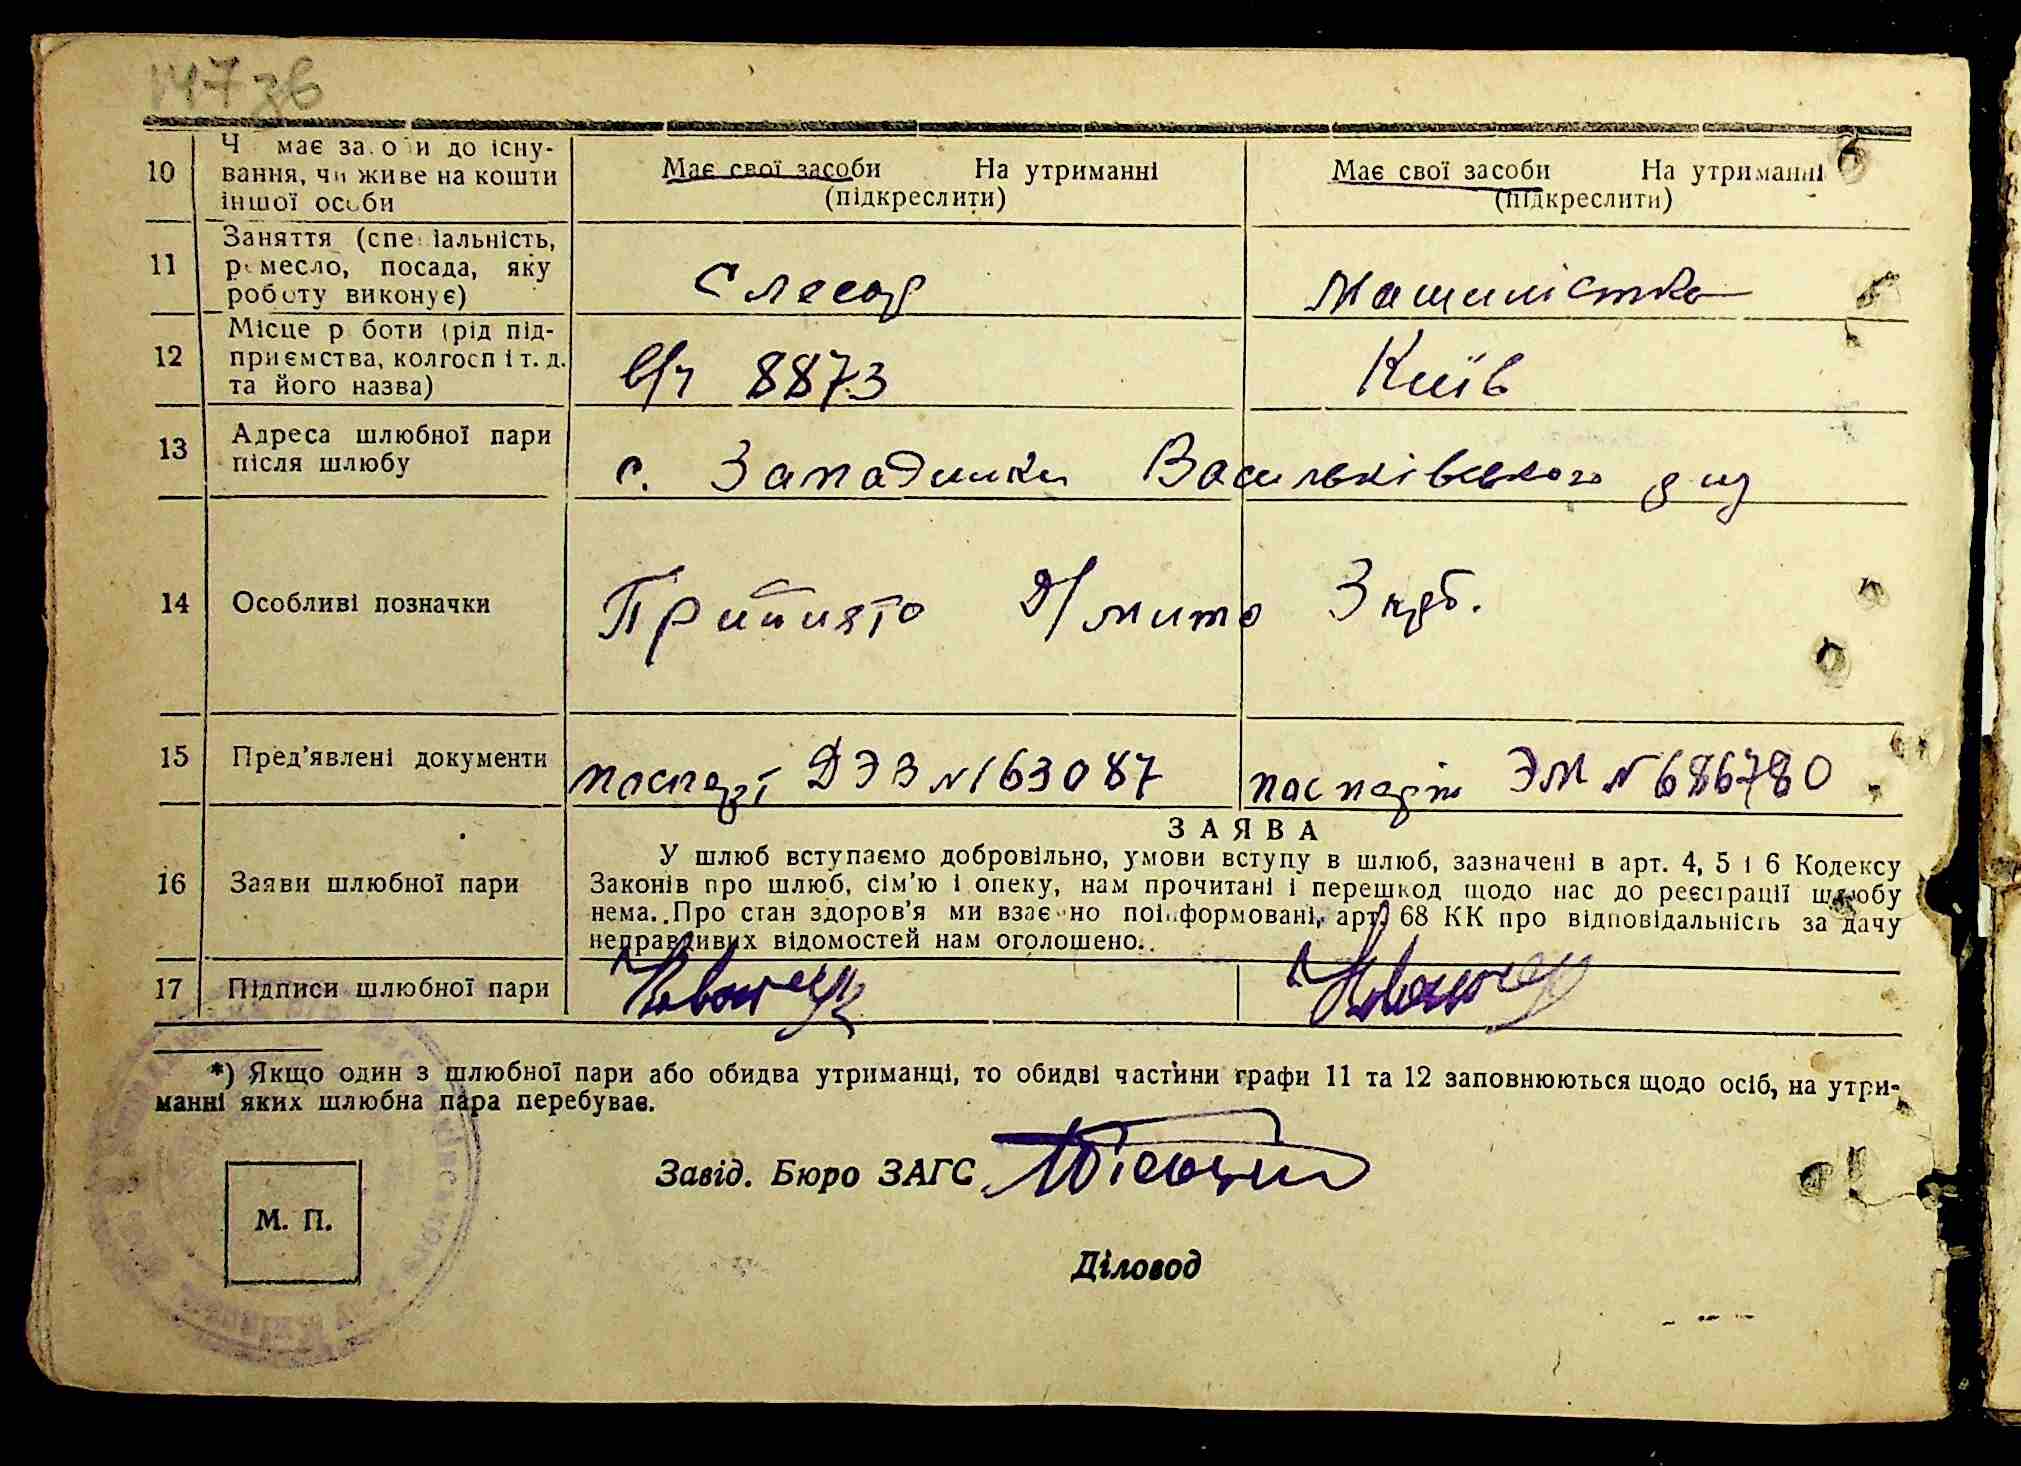 147 зв
10
Ч має за.о и до існу-
вання, чи живе на кошти
іншої особи
Має свої засоби На утриманні
(підкреслити)
Має свої засоби На утриманні
(підкреслити)
11
Заняття (спе іальність,
ремесло, посада, яку
роботу виконує)
Слесар
Машиністка
12
Місце р боти (рід під-
приємства, колгосп і т. д.
та його назва)
в/ч 8873
Київ
13
Адреса шлюбної пари
після шлюбу
с. Западинки Васильківського р-ну
14
Особливі позначки
Прийнято д/мито 3 крб.
15
Пред’явлені документи
паспорт ДЭВ №163087
паспорт ЭМ №686780
16
Заяви шлюбної пари
ЗАЯВА
У шлюб вступаємо добровільно, умови вступу в шлюб, зазначені в арт. 4, 5 і 6 Кодексу
Законів про шлюб, сім’ю і опеку, нам прочитані і перешкод щодо нас до реєстрації шлюбу
нема. Про стан здоров’я ми взаємно поінформовані, арт. 68 КК про відповідальність за дачу
неправдивих відомостей нам оголошено.
17
Підписи шлюбної пари
*) Якщо один з шлюбної пари або обидва утриманці, то обидві частини графи 11 та 12 заповнюються щодо осіб, на утри-
манні яких шлюбна пара перебуває.
Завід. Бюро ЗАГС
М. П.
Діловод